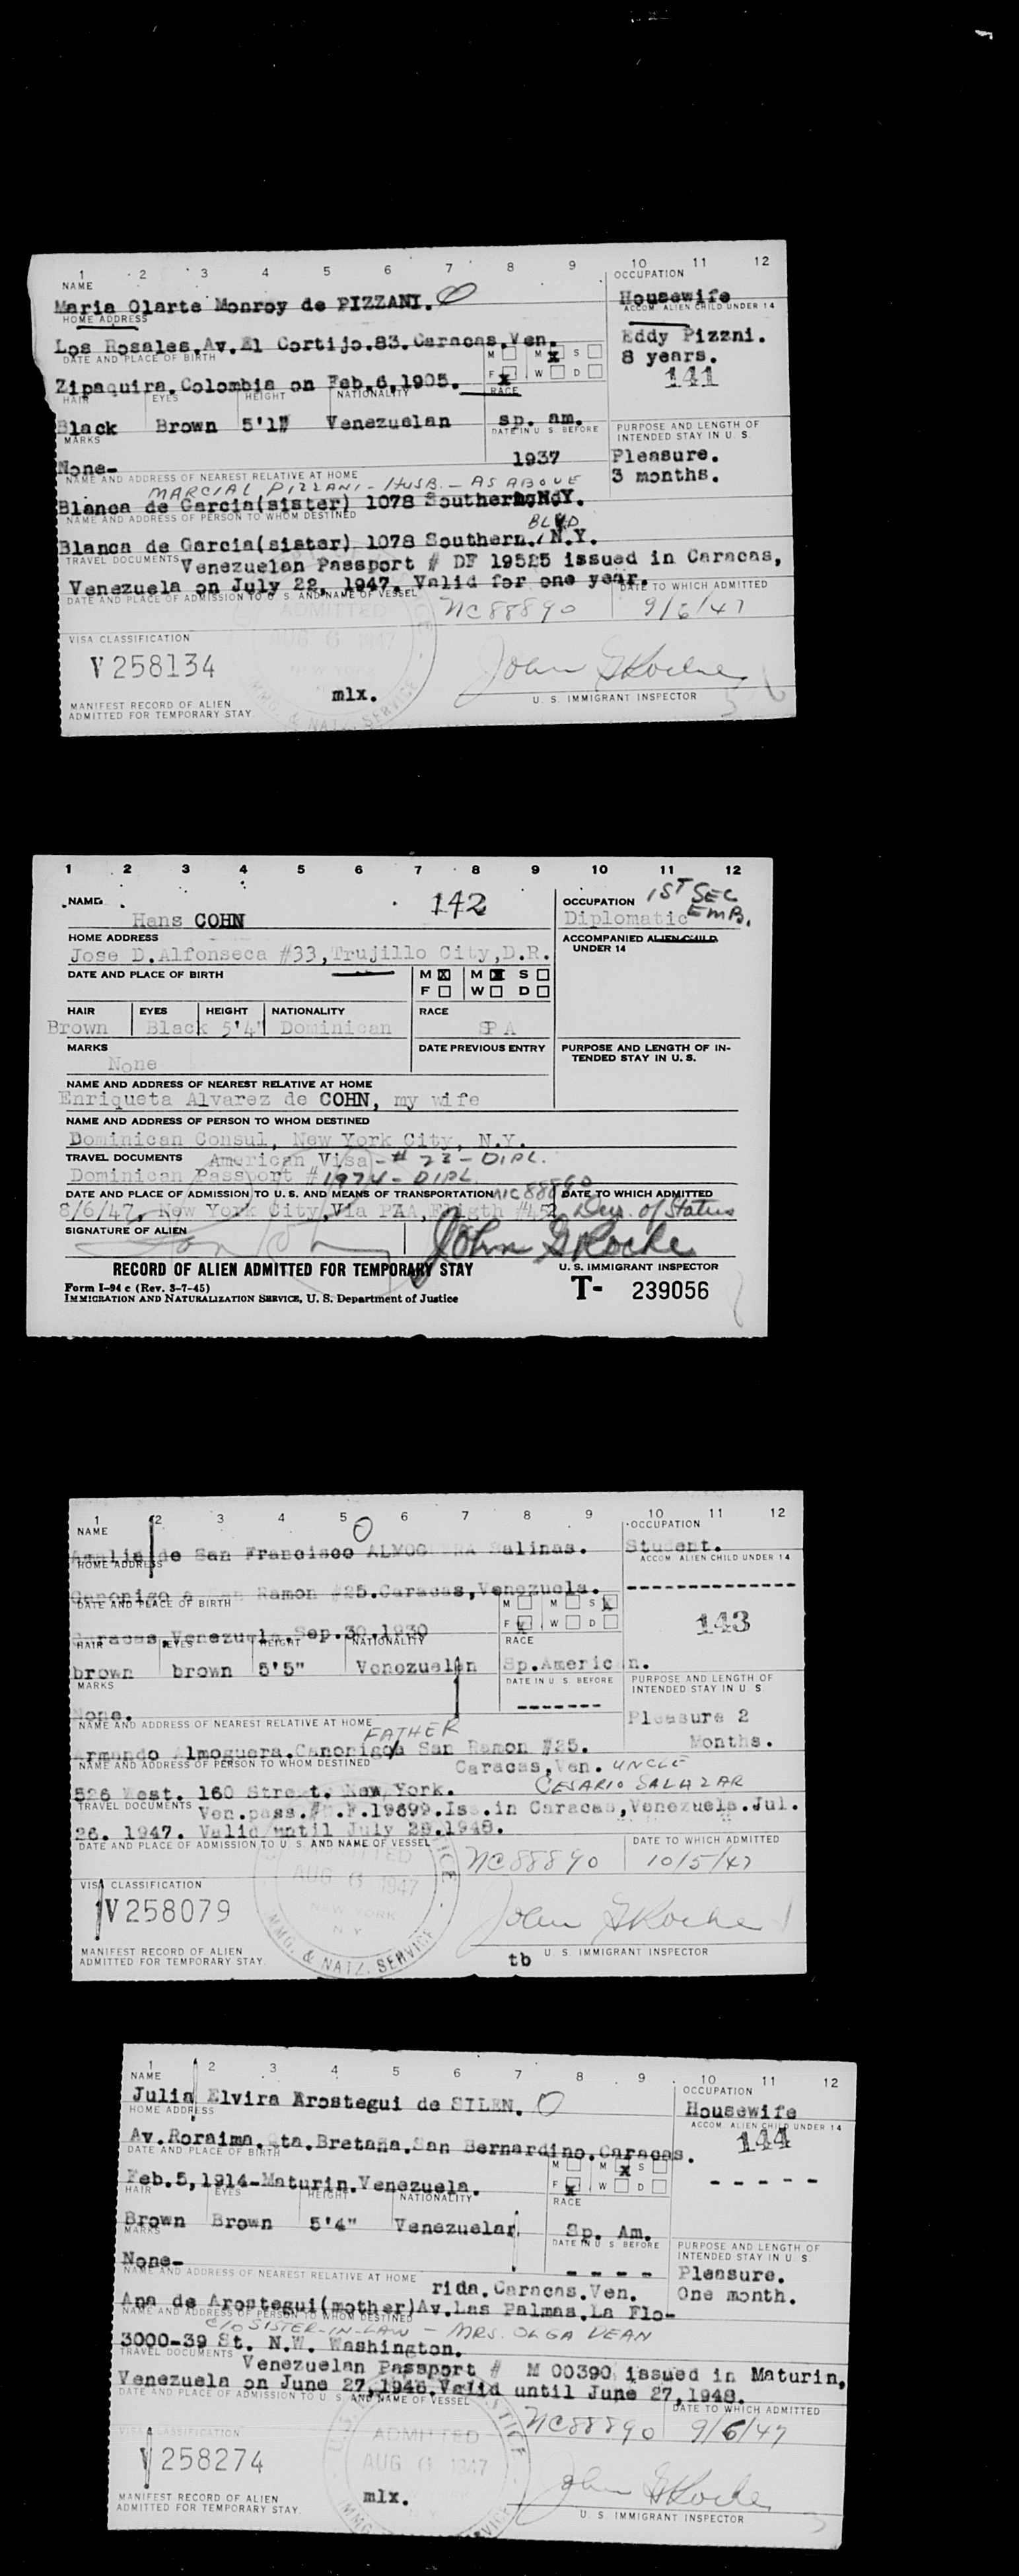 1 2 3 4 5 6 7 8 9 10 11 12
NAME
OCCUPATION
Maria Olarte Monroy de PIZZANI.
Housewife
HOME ADDRESS
ACCOM. ALIEN CHILD UNDER 14
Los Rosales.Av.El Cortijo.83.Caracas.Ven.
Eddy Pizzni.
8 years.
141
DATE AND PLACE OF BIRTH
M M X S
F X W D
Zipaquira.Colombia on Feb.6.1905.
HAIR EYES HEIGHT NATIONALITY RACE
Black Brown 5'1" Venezuelan sp. am.
MARKS
DATE IN U. S. BEFORE
PURPOSE AND LENGTH OF
INTENDED STAY IN U. S.
None-
1937
Pleasure.
3 months.
NAME AND ADDRESS OF NEAREST RELATIVE AT HOME
MARCIAL PIZZANI - HUSB. - AS ABOVE
Blanca de Garcia(sister) 1078 Southern.N.Y.
NAME AND ADDRESS OF PERSON TO WHOM DESTINED
BLVD
Blanca de Garcia(sister) 1078 Southern. N.Y.
TRAVEL DOCUMENTS Venezuelan Passport # DF 19525 issued in Caracas,
Venezuela on July 22, 1947. Valid for one year.
DATE AND PLACE OF ADMISSION TO U. S. AND NAME OF VESSEL
DATE TO WHICH ADMITTED
ADMITTED
NC88890 9/6/47
AUG 6 1947
VISA CLASSIFICATION
NEW YORK
V 258134
John G Roche
mlx.
U. S. IMMIGRANT INSPECTOR
MANIFEST RECORD OF ALIEN
ADMITTED FOR TEMPORARY STAY.
IMMG. & NATZ. SERVICE
1 2 3 4 5 6 7 8 9 10 11 12
NAME
142
OCCUPATION 1ST SEC
EMB.
Hans COHN
Diplomatic
HOME ADDRESS
ACCOMPANIED ALIEN CHILD
UNDER 14
Jose D.Alfonseca #33,Trujillo City,D.R.
DATE AND PLACE OF BIRTH
M X M X S
F W D
HAIR EYES HEIGHT NATIONALITY RACE
Brown Black 5'4" Dominican SP A
MARKS
DATE PREVIOUS ENTRY
PURPOSE AND LENGTH OF IN-
TENDED STAY IN U. S.
None
NAME AND ADDRESS OF NEAREST RELATIVE AT HOME
Enriqueta Alvarez de COHN, my wife
NAME AND ADDRESS OF PERSON TO WHOM DESTINED
Dominican Consul, New York City, N.Y.
TRAVEL DOCUMENTS American Visa - # 23 - DIPL.
Dominican Passport #1974 - DIPL
DATE AND PLACE OF ADMISSION TO U. S. AND MEANS OF TRANSPORTATION NC88890 DATE TO WHICH ADMITTED
8/6/47, New York City,Via PAA,Fligth #452 Dur. of Status
SIGNATURE OF ALIEN
John G Roche
RECORD OF ALIEN ADMITTED FOR TEMPORARY STAY
U. S. IMMIGRANT INSPECTOR
Form I-94 c (Rev. 3-7-45)
IMMIGRATION AND NATURALIZATION SERVICE, U. S. Department of Justice
T- 239056
1 2 3 4 5 6 7 8 9 10 11 12
NAME
OCCUPATION
de San Francisco Salinas.
Student.
HOME ADDRESS
ACCOM. ALIEN CHILD UNDER 14
Canonigo a San Ramon #25.Caracas,Venezuela.
DATE AND PLACE OF BIRTH
M M S X
F X W D
143
Caracas,Venezuela,Sep.30.1930
HAIR EYES HEIGHT NATIONALITY RACE
brown brown 5'5" Venezuelan Sp.American.
MARKS
DATE IN U. S. BEFORE
PURPOSE AND LENGTH OF
INTENDED STAY IN U. S.
None.
Pleasure 2
Months.
NAME AND ADDRESS OF NEAREST RELATIVE AT HOME
FATHER
Armando Almoguera.Canonigoa San Ramon #25.
NAME AND ADDRESS OF PERSON TO WHOM DESTINED
Caracas,Ven. UNCLE
526 West. 160 Street. New York.
CESARIO SALAZAR
TRAVEL DOCUMENTS Ven.pass.# .F.19699.Iss.in Caracas,Venezuela.Jul.
26. 1947. Valid until July 28.1948.
DATE AND PLACE OF ADMISSION TO U. S. AND NAME OF VESSEL
DATE TO WHICH ADMITTED
ADMITTED
NC88890 10/5/47
AUG 6 1947
VISA CLASSIFICATION
NEW YORK
N Y
V 258079
John G Roche
MANIFEST RECORD OF ALIEN
ADMITTED FOR TEMPORARY STAY.
tb
U. S. IMMIGRANT INSPECTOR
IMMG. & NATZ. SERVICE
1 2 3 4 5 6 7 8 9 10 11 12
NAME
OCCUPATION
Julia Elvira Arostegui de SILEN.
Housewife
HOME ADDRESS
ACCOM. ALIEN CHILD UNDER 14
144
Av.Roraima.Qta.Bretaña.San Bernardino.Caracas.
DATE AND PLACE OF BIRTH
M M X S
F X W D
Feb.5,1914-Maturin.Venezuela.
HAIR EYES HEIGHT NATIONALITY RACE
Brown Brown 5'4" Venezuelan Sp. Am.
MARKS
DATE IN U. S. BEFORE
PURPOSE AND LENGTH OF
INTENDED STAY IN U. S.
None-
Pleasure.
One month.
NAME AND ADDRESS OF NEAREST RELATIVE AT HOME
rida.Caracas.Ven.
Ana de Arostegui(mother)Av.Las Palmas.La Flo-
NAME AND ADDRESS OF PERSON TO WHOM DESTINED
C/O SISTER-IN-LAW - MRS. OLGA VEAN
3000-39 St. N.W. Washington.
TRAVEL DOCUMENTS Venezuelan Passport # M 00390 issued in Maturin,
Venezuela on June 27,1946.Valid until June 27,1948.
DATE AND PLACE OF ADMISSION TO U. S. AND NAME OF VESSEL
DATE TO WHICH ADMITTED
ADMITTED
NC88890 9/6/47
VISA CLASSIFICATION
AUG 6 1947
V 258274
John G Roche
MANIFEST RECORD OF ALIEN
ADMITTED FOR TEMPORARY STAY.
mlx.
U. S. IMMIGRANT INSPECTOR